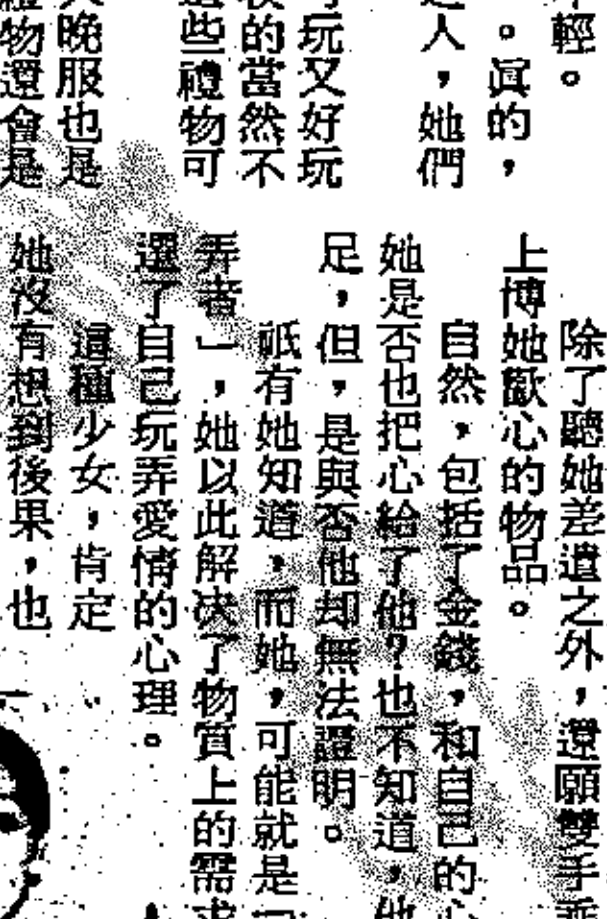 輕。
。眞的，
人，她們
玩又好玩
的當然不
些禮物可
晚服也是
物還會是
除了聽她差遣之外，還願雙手
上博她歡心的物品。
自然，包括了金錢，和自己的心
她是否也把心給了他？也不知道，他
足，但，是與否他却無法證明。
祇有她知道，而她，可能就是「
弄者」，她以此解決了物質上的需求
還了自己玩弄愛情的心理。
這種少女，肯定
她沒有想到後果，也